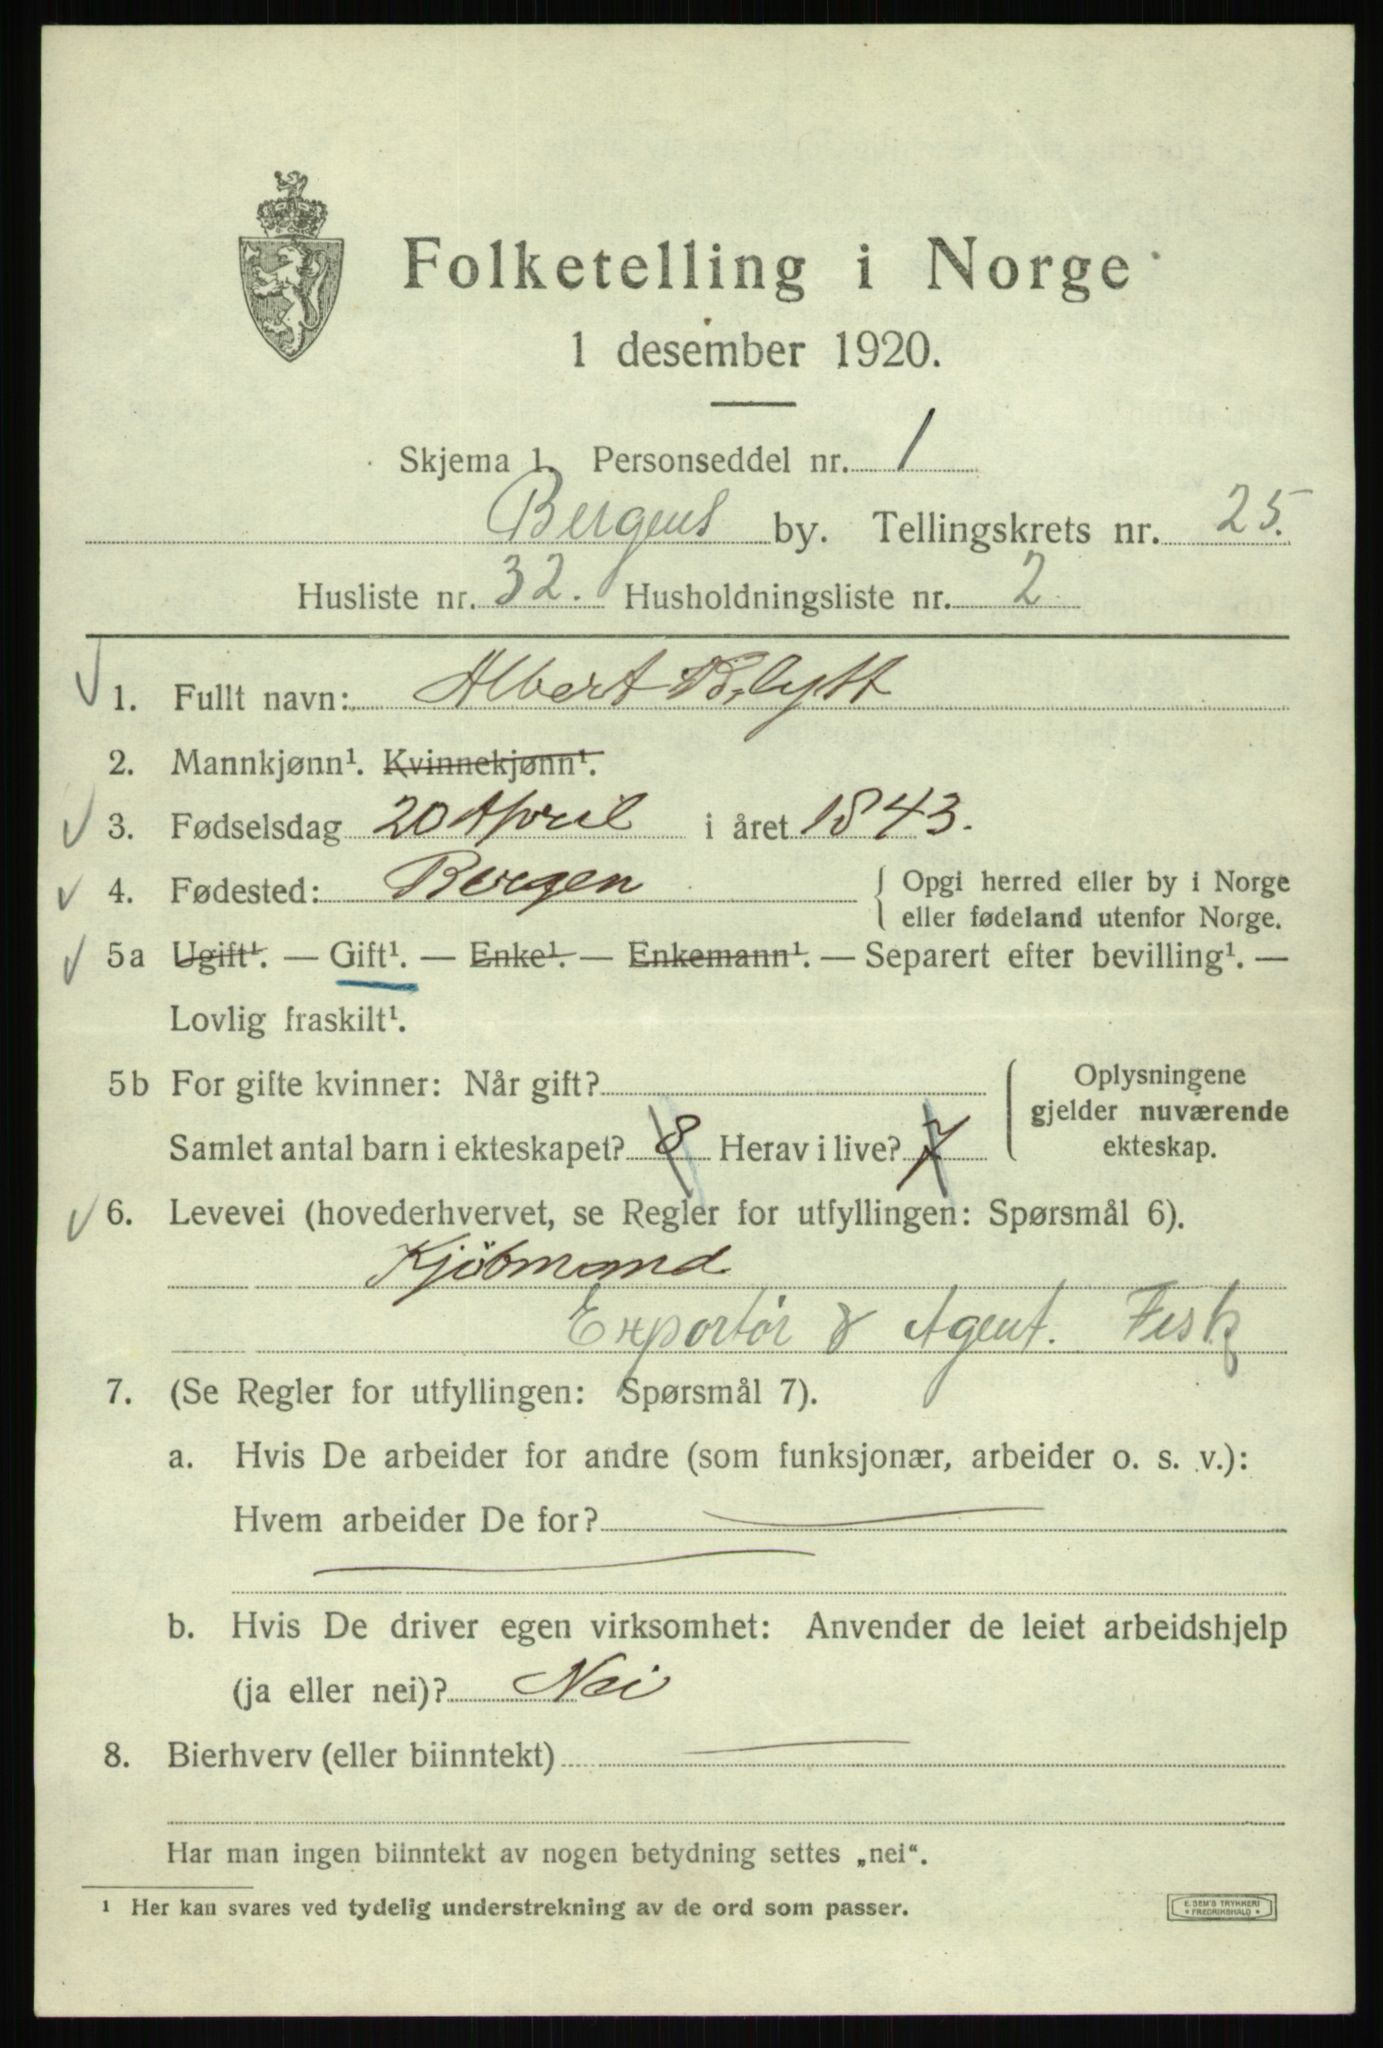 Folketelling i Norge
1 desember 1920.
Skjema 1. Personseddel nr. 1
Bergens by. Tellingskrets nr. 25.
Husliste nr. 32. Husholdningsliste nr. 2
1. Fullt navn: Albert Blytt
2. Mannkjønn¹. Kvinnekjønn¹.
3. Fødselsdag 20 April i året 1843.
4. Fødested: Bergen { Opgi herred eller by i Norge
eller fødeland utenfor Norge.
5a Ugift¹. — Gift¹. — Enke¹. — Enkemann¹. — Separert efter bevilling¹. —
Lovlig fraskilt¹.
5b For gifte kvinner: Når gift?
Samlet antal barn i ekteskapet? 8 Herav i live? 7
Oplysningene
gjelder nuværende
ekteskap.
6. Levevei (hovederhvervet, se Regler for utfyllingen: Spørsmål 6).
Kjöbmand
Exportør & Agent. Fisk
7. (Se Regler for utfyllingen: Spørsmål 7).
a. Hvis De arbeider for andre (som funksjonær, arbeider o. s. v.):
Hvem arbeider De for?
b. Hvis De driver egen virksomhet: Anvender de leiet arbeidshjelp
(ja eller nei)? Nei
8. Bierhverv (eller biinntekt)
Har man ingen biinntekt av nogen betydning settes „nei“.
¹ Her kan svares ved tydelig understrekning av de ord som passer.
E. SEM'S TRYKKERI
* FREDRIKSHALD *